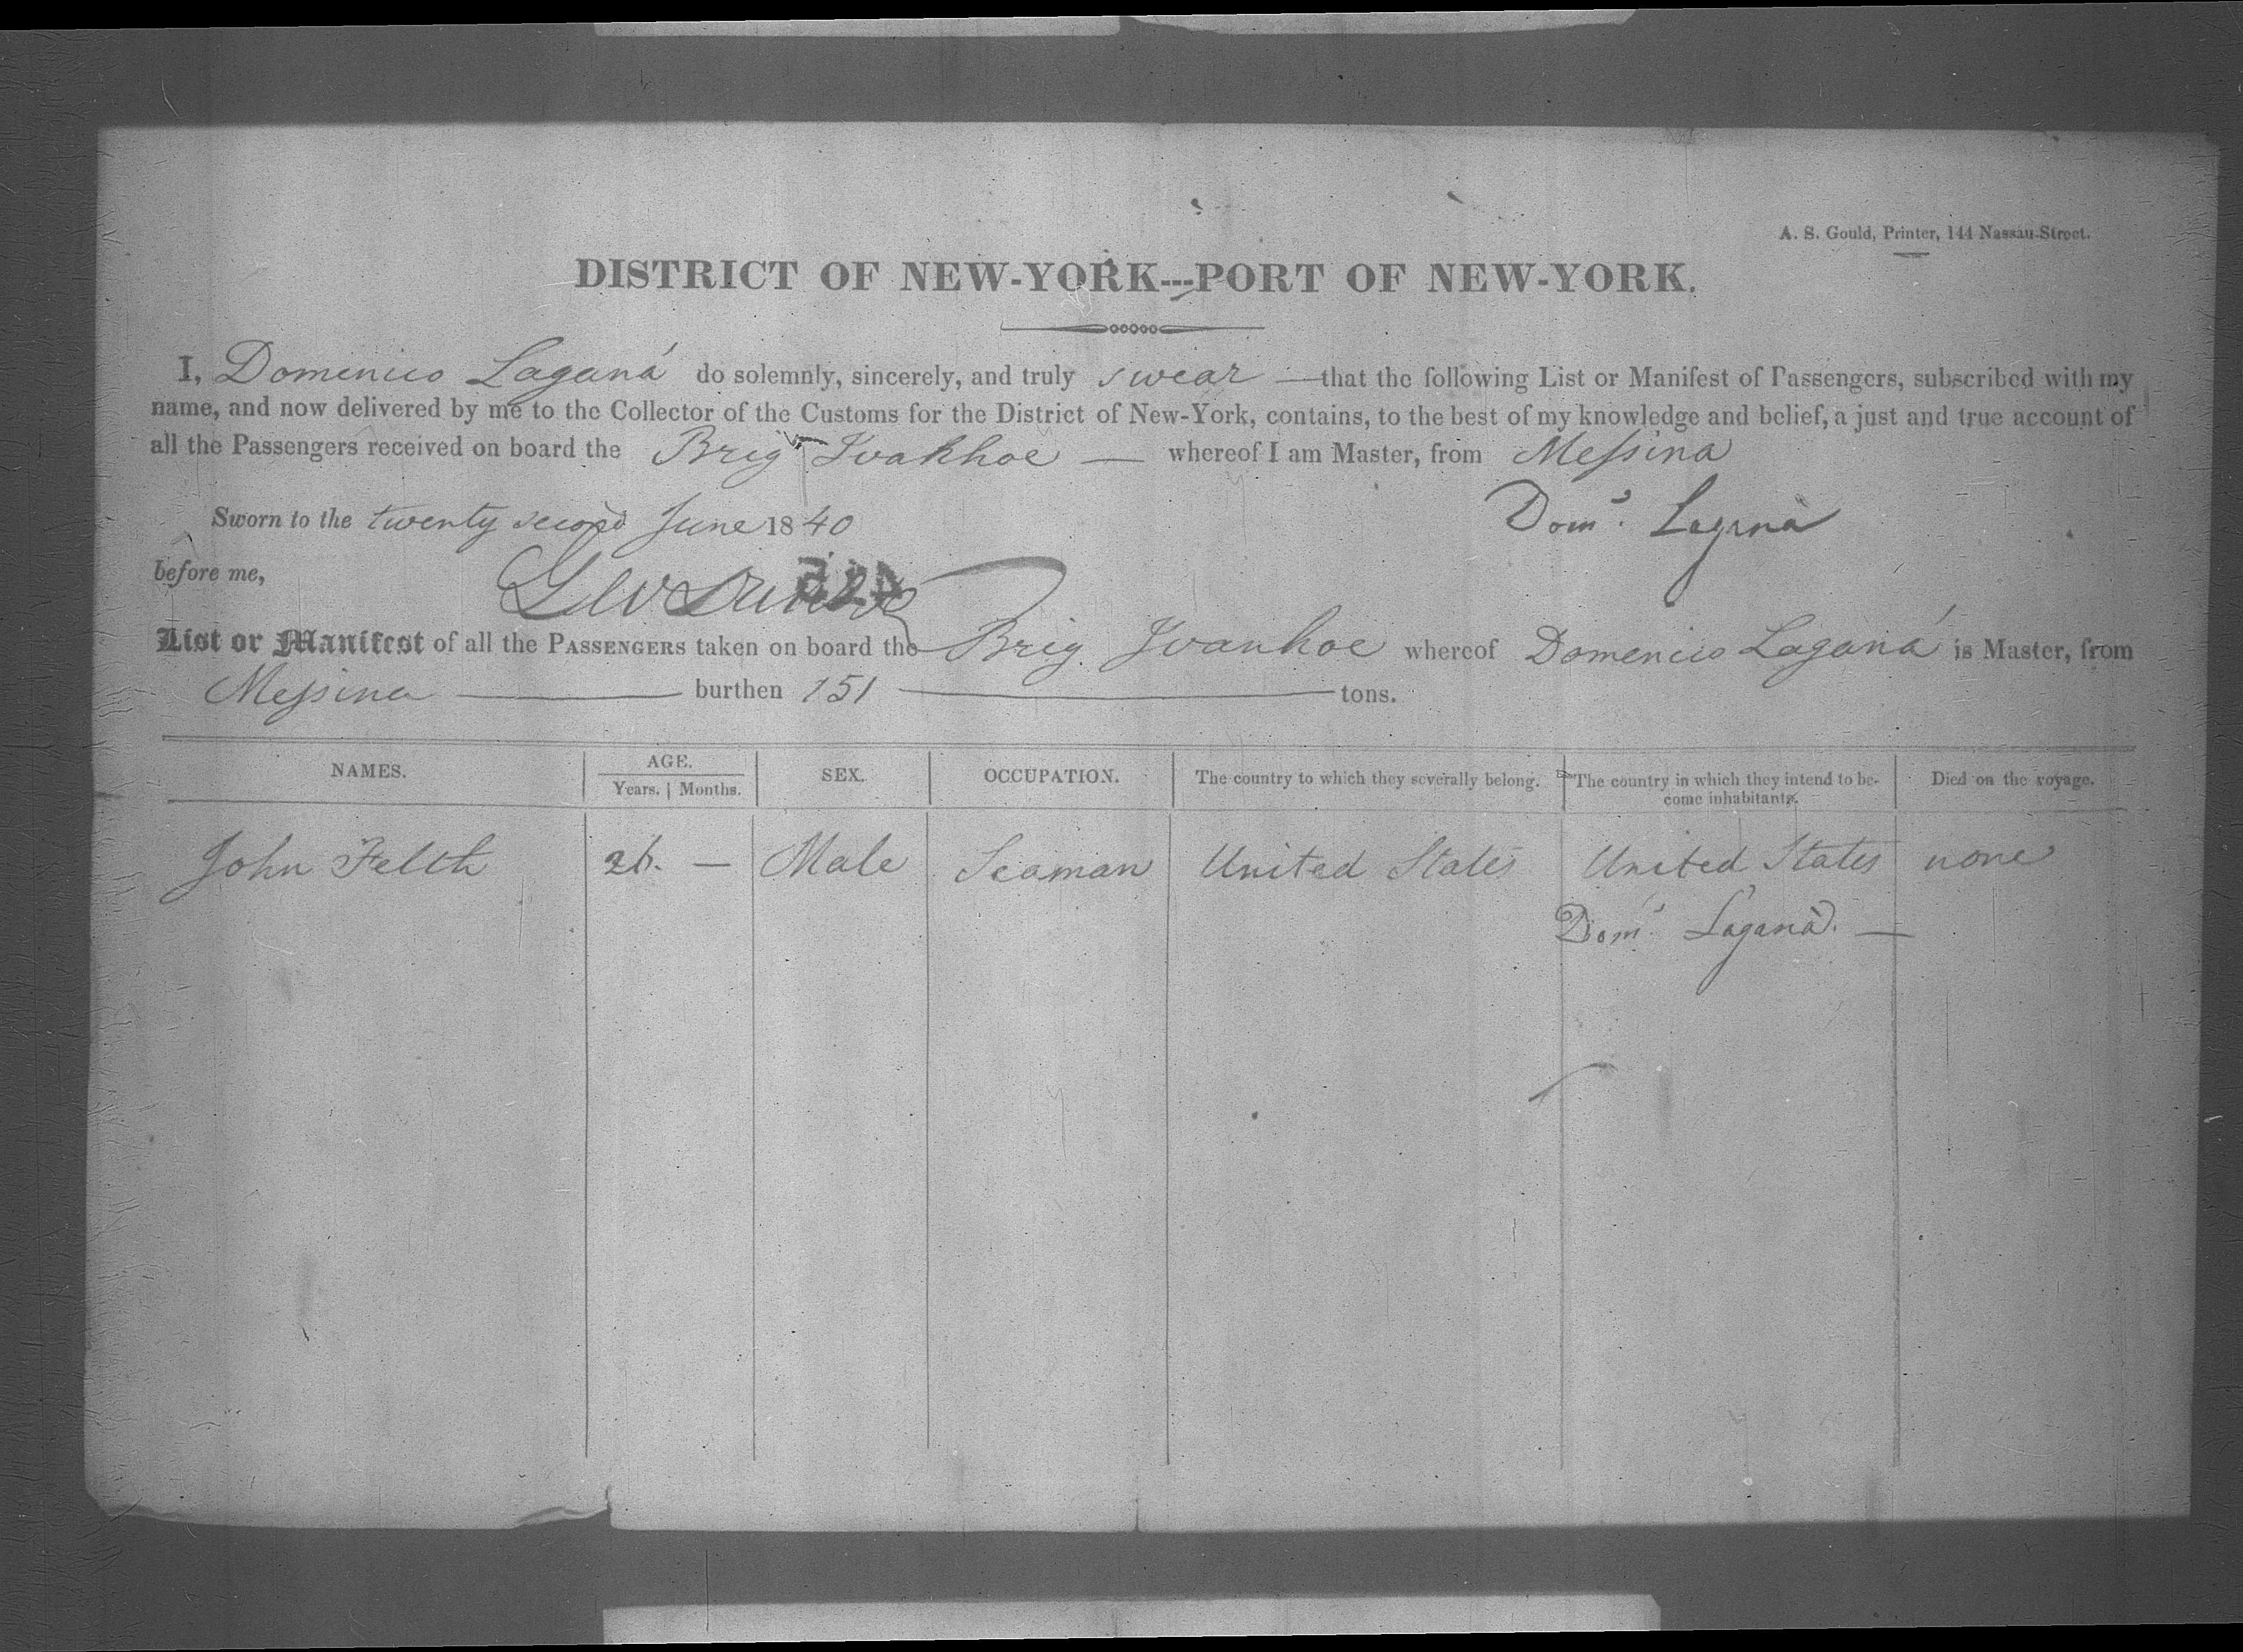 A. S. Gould, Printer, 144 Nassau-Street.
DISTRICT OF NEW-YORK---PORT OF NEW-YORK.
I, Domenico Laganá do solemnly, sincerely, and truly swear —that the following List or Manifest of Passengers, subscribed with my
name, and now delivered by me to the Collector of the Customs for the District of New-York, contains, to the best of my knowledge and belief, a just and true account of
all the Passengers received on board the Brig Ivakhoe — whereof I am Master, from Messina
Sworn to the twenty second June 1840
Domo. Laganà
before me,
List or Manifest of all the PASSENGERS taken on board the Brig Ivanhoe whereof Domenico Laganá is Master, from
Messina — burthen 151 — tons.
NAMES. AGE. SEX. OCCUPATION. The country to which they severally belong. The country in which they intend to be- Died on the voyage.
Years. | Months. come inhabitants.
John Felth 26. — Male Seaman United States United States none
Domo. Laganà. —